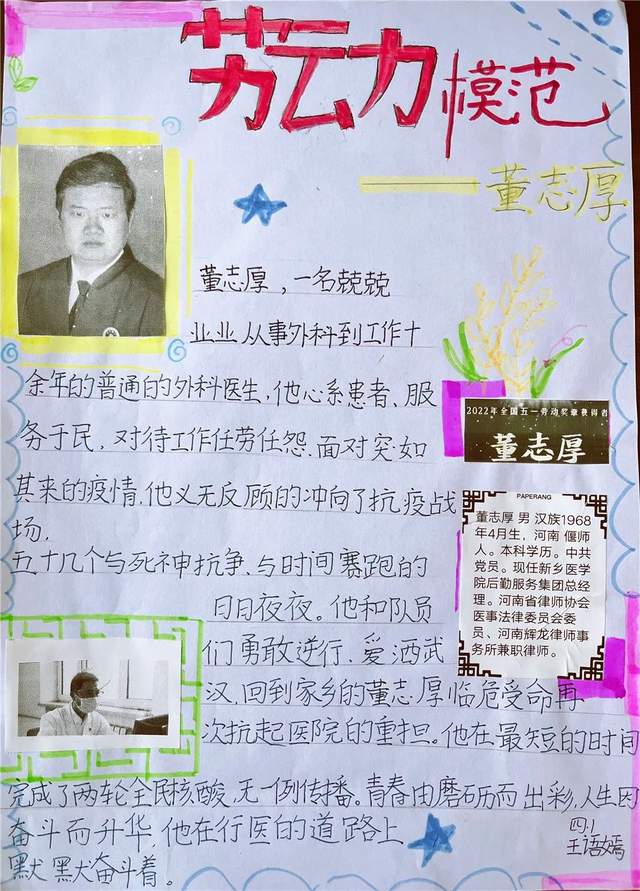 劳动力模范
——董志厚
董志厚，一名兢兢
业业从事外科到工作十
余年的普通的外科医生，他心系患者、服
务于民，对待工作任劳任怨。面对突如
其来的疫情，他义无反顾的冲向了抗疫战
场，
五十几个与死神抗争、与时间赛跑的
日日夜夜。他和队员
们勇敢逆行、爱洒武
汉，回到家乡的董志厚临危受命再
次抗起医院的重担。他在最短的时间
完成了两轮全民核酸，无一例传播。青春由磨砺而出彩，人生因
奋斗而升华，他在行医的道路上
默默奋斗着。
2022年全国五一劳动奖章获得者
董志厚
PAPERANG
董志厚 男 汉族1968
年4月生，河南 偃师
人。本科学历。中共
党员。现任新乡医学
院后勤服务集团总经
理。河南省律师协会
医事法律委员会委
员、河南辉龙律师事
务所兼职律师。
四.1
王语嫣